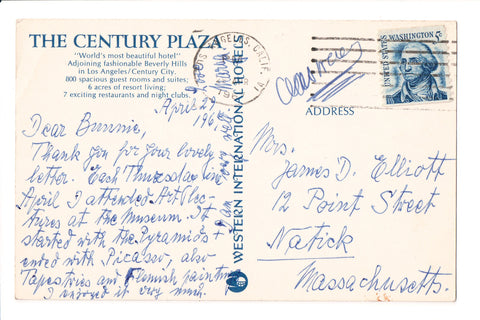 THE CENTURY PLAZA
"World's most beautiful hotel"
Adjoining fashionable Beverly Hills
in Los Angeles/Century City.
800 spacious guest rooms and suites;
6 acres of resort living;
7 exciting restaurants and night clubs.
April 29
196
Dear Bunnie,
Thank you for your lovely
letter. Each Thursday in
April I attended Art lec-
tures at the Museum. It
started with the Pyramids +
ended with Picasso, also
Tapestries and Flemish painting
I enjoyed it very much.
WESTERN INTERNATIONAL HOTELS
LOS ANGELES, CALIF.
AIR MAIL
UNITED STATES
WASHINGTON 5c
ADDRESS
Mrs.
James D. Elliott
12 Point Street
Natick
Massachusetts.